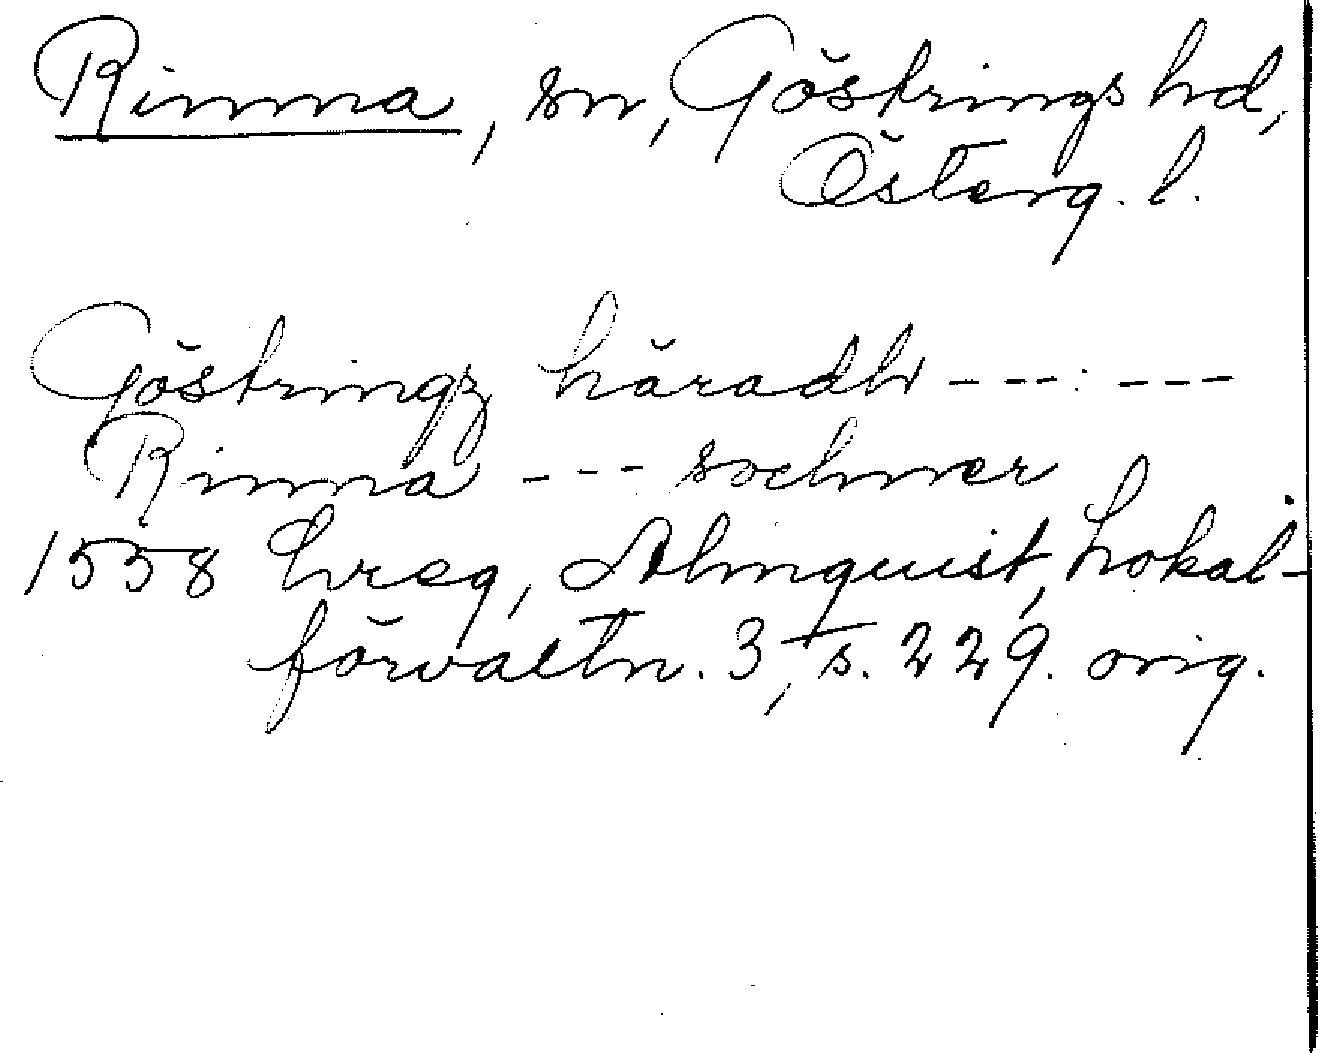 Rinna, sn, Göstrings hd,
Österg. l.
Göstringz häradh --- : ---
Rinna --- sochner
1558 hreg, Almquist, Lokal-
förvaltn. 3, s. 229. orig.